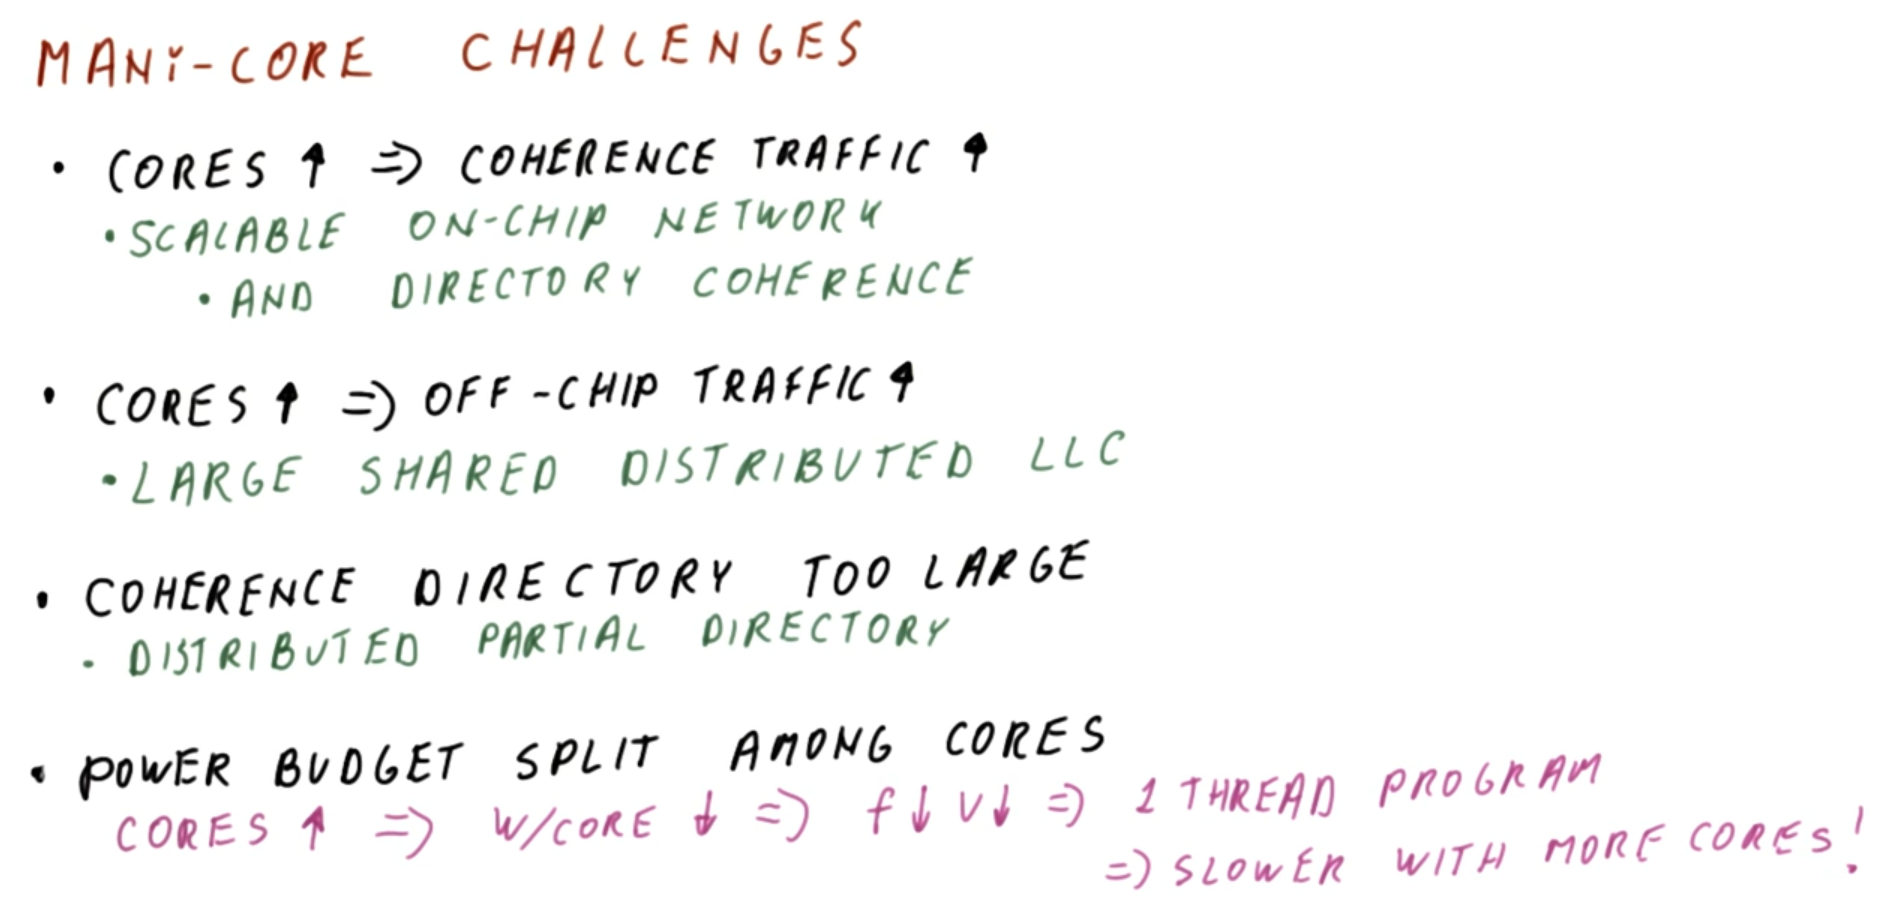 MANi-CORE CHALLENGES
• CORES ↑ => COHERENCE TRAFFIC ↑
• SCALABLE ON-CHIP NETWORK
• AND DIRECTORY COHERENCE
• CORES ↑ => OFF-CHIP TRAFFIC ↑
• LARGE SHARED DISTRIBUTED LLC
• COHERENCE DIRECTORY TOO LARGE
- DISTRIBUTED PARTIAL DIRECTORY
• POWER BUDGET SPLIT AMONG CORES
CORES ↑ => W/CORE ↓ => f↓ V↓ => 1 THREAD PROGRAM
=> SLOWER WITH MORE CORES!